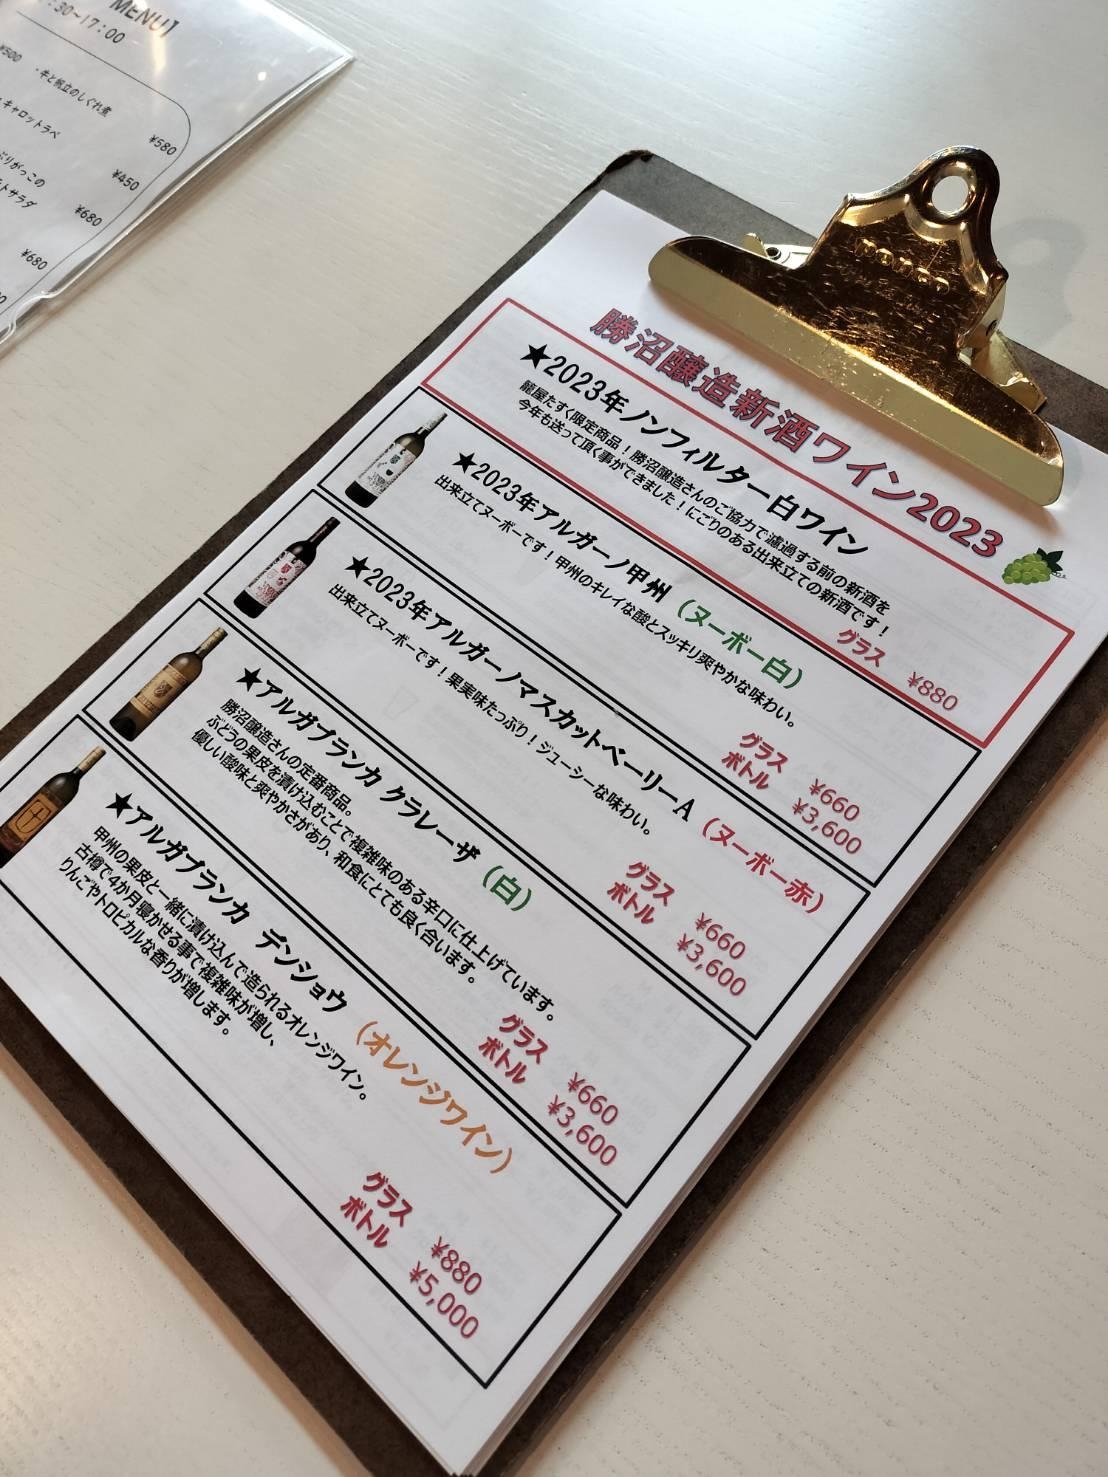 MENU】
:30~17:00
¥500
・牛と帆立のしぐれ煮
キャロットラペ
¥580
ぶりがっこの
¥450
トサラダ
¥680
¥680
勝沼醸造新酒ワイン2023
★2023年ノンフィルター白ワイン
籠屋たすく限定商品！勝沼醸造さんのご協力で濾過する前の新酒を
今年も送って頂く事ができました！にごりのある出来立ての新酒です！
グラス ¥880
★2023年アルガーノ甲州（ヌーボー白）
出来立てヌーボーです！甲州のキレイな酸とスッキリ爽やかな味わい。
グラス ¥660
ボトル ¥3,600
★2023年アルガーノマスカットベーリーA（ヌーボー赤）
出来立てヌーボーです！果実味たっぷり！ジューシーな味わい。
グラス ¥660
ボトル ¥3,600
★アルガブランカ クラレーザ（白）
勝沼醸造さんの定番商品。
ぶどうの果皮を漬け込むことで複雑味のある辛口に仕上げています。
優しい酸味と爽やかさがあり、和食にとても良く合います。
グラス ¥660
ボトル ¥3,600
★アルガブランカ デンショウ（オレンジワイン）
甲州の果皮と一緒に漬け込んで造られるオレンジワイン。
古樽で4か月寝かせる事で複雑味が増し、
りんごやトロピカルな香りが増します。
グラス ¥880
ボトル ¥5,000